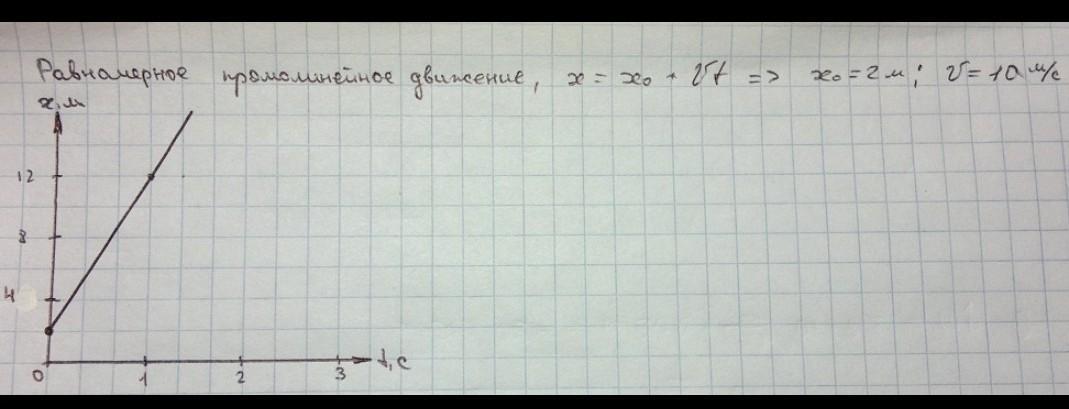 Равномерное прямолинейное движение, x = x₀ + Vt => x₀ = 2 м; V = 10 м/с
x, м
12
8
4
0 1 2 3 t, c